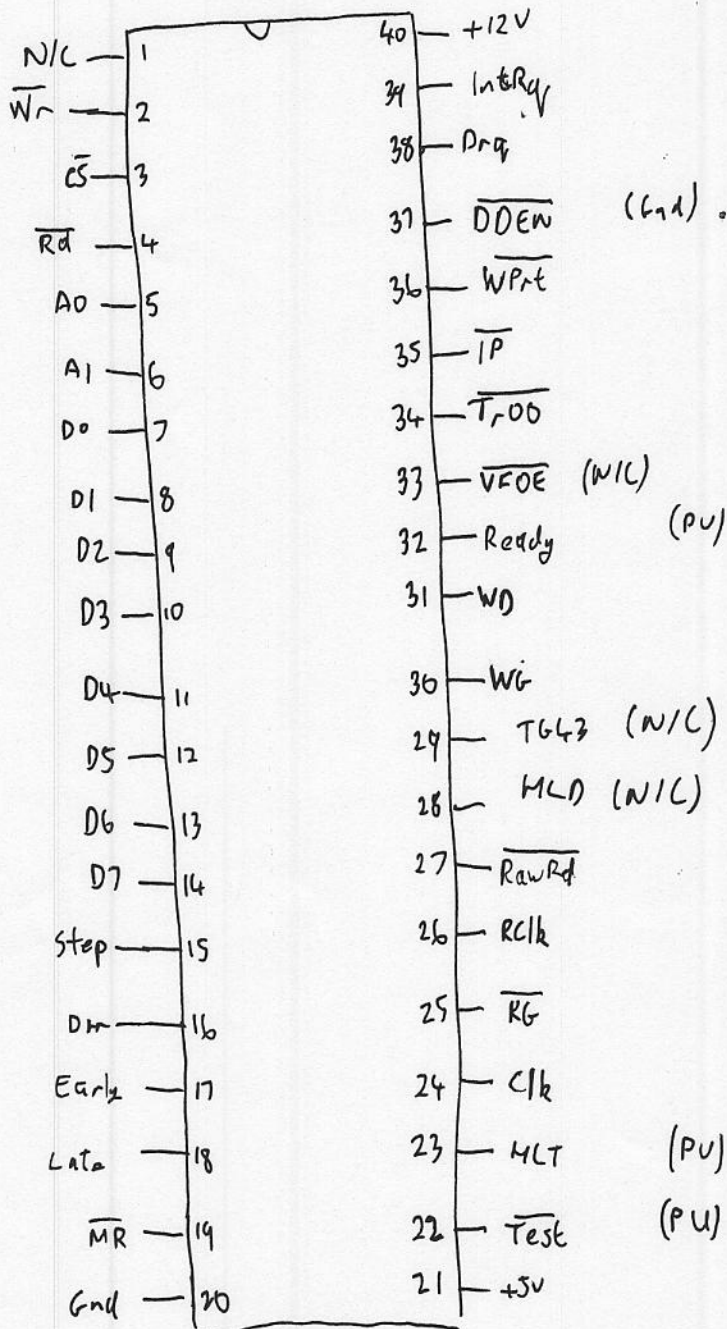 N/C 1
Wr 2
CS 3
Rd 4
A0 5
A1 6
D0 7
D1 8
D2 9
D3 10
D4 11
D5 12
D6 13
D7 14
Step 15
16
Early 17
Late 18
MR 19
Gnd 20
40 +12V
39 IntRq
38 Drq
37 DDEN (Gnd)
36 WPrt
35 IP
34 Tr00
33 VFOE (N/C)
32 Ready (PU)
31 WD
30 WG
29 TG43 (N/C)
28 HLD (N/C)
27 RawRd
26 RClk
25 RG
24 Clk
23 HLT (PU)
22 Test (PU)
21 +5V